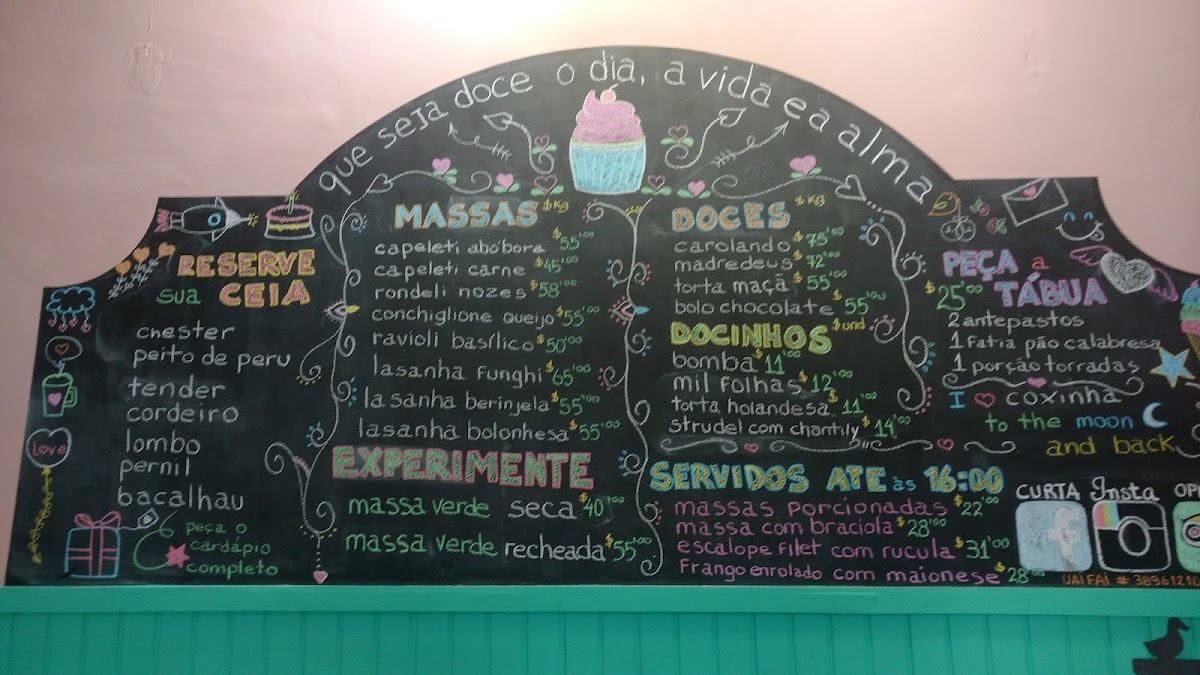 que seja doce o dia, a vida e a alma
RESERVE
sua CEIA
chester
peito de peru
tender
cordeiro
lombo
pernil
bacalhau
peça o
cardápio
completo
love
MASSAS $kg
capeleti abóbora $55'00
capeleti carne $45'00
rondeli nozes $58'00
conchiglione queijo $55'00
ravioli basílico $50'00
lasanha funghi $65'00
lasanha berinjela $55'00
lasanha bolonhesa $55'00
EXPERIMENTE
massa verde seca $40'00
massa verde recheada $55'00
DOCES $kg
carolando $75'00
madredeus $72'00
torta maçã $55'00
bolo chocolate $55'00
DOCINHOS $und
bomba $11'00
mil folhas $12'00
torta holandesa $11'00
strudel com chantily $14'00
SERVIDOS ATE às 16:00
massas porcionadas $22'00
massa com braciola $28'00
escalope filet com rucula $31'00
frango enrolado com maionese $28'00
PEÇA a
TÁBUA
$25'00
2 antepastos
1 fatia pão calabresa
1 porsão torradas
I coxinha
to the moon
and back
CURTA Insta
f
UAI FAI # 38961210